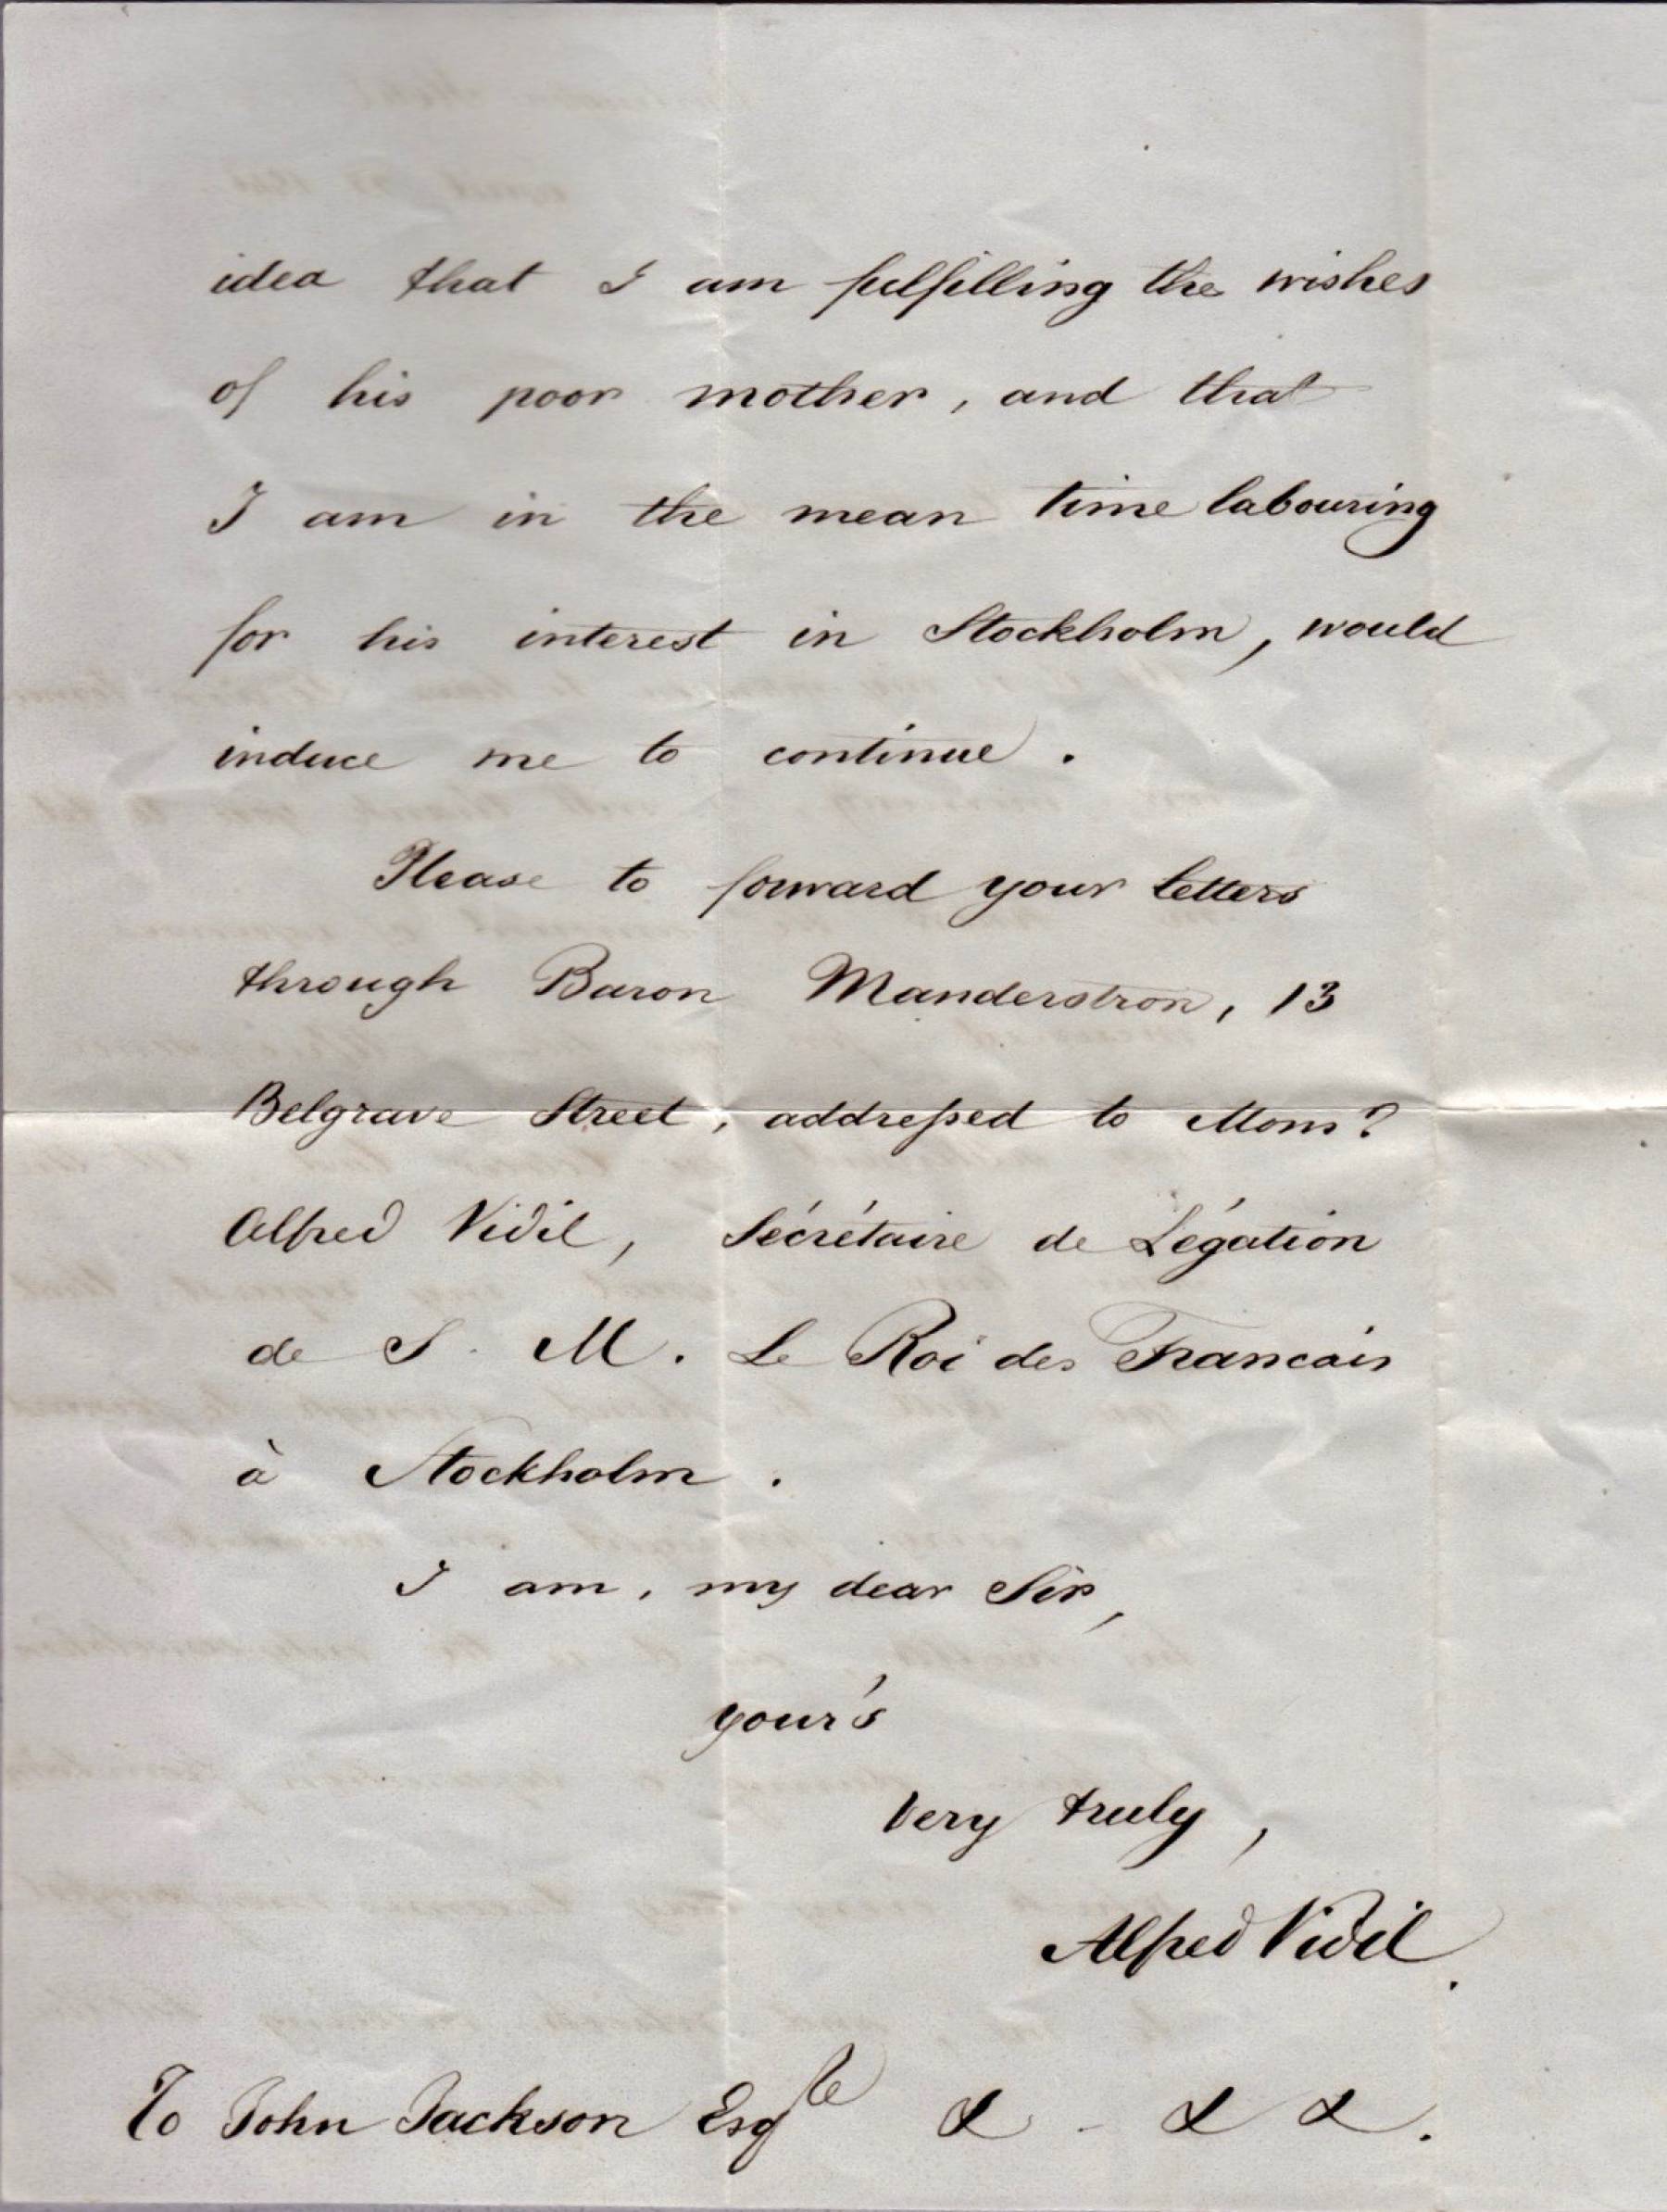 idea that I am fulfilling the wishes
of his poor mother, and that
I am in the mean time labouring
for his interest in Stockholm, would
induce me to continue.
Please to forward your letters
through Baron Manderstron, 13
Belgrave Street, addressed to Monsr
Alfred Vidil, Sécrétaire de Légation
de S. M. Le Roi des Francais
à Stockholm.
I am, my dear Sir,
your's
very truly,
Alfred Vidil.
To John Jackson Esqre & - & &.